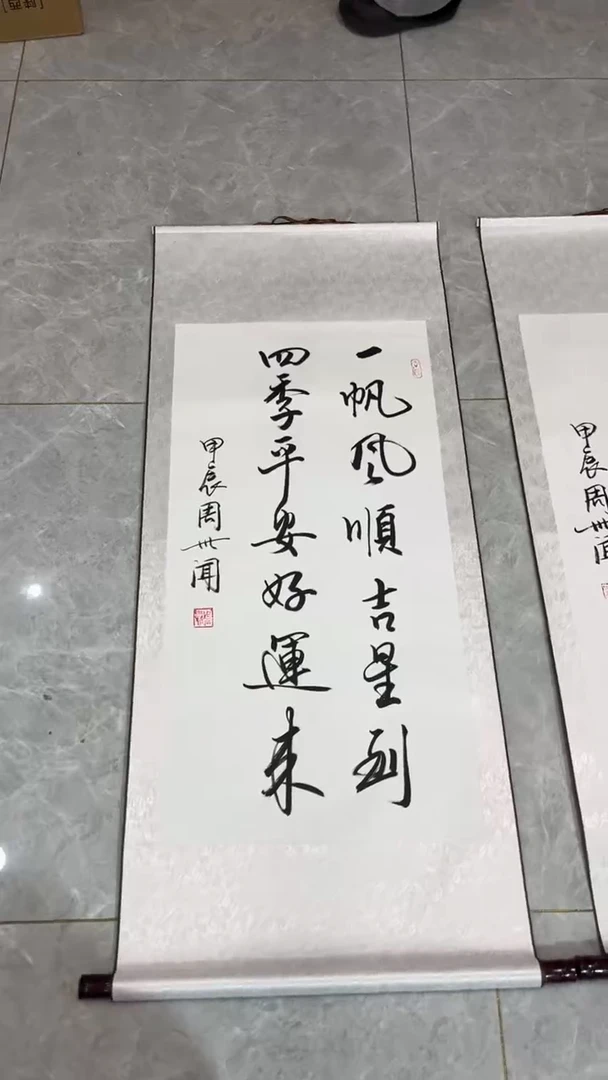 一帆风順吉星到
四季平安好運来
甲辰周世闻
甲辰周世闻